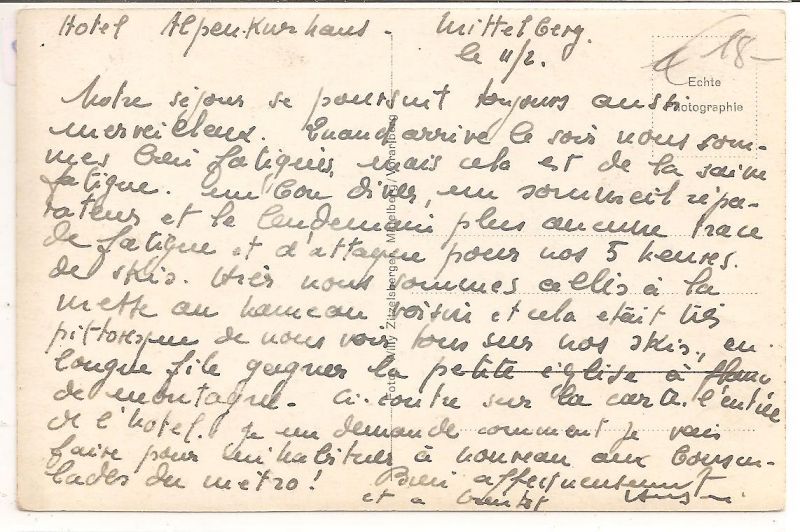 Hotel Alpenkurhaus. Mittelberg.
le 11/2.
18-
Echte
Photographie
Notre séjour se poursuit toujours aussi
merveilleux. Quand arrive le soir nous som-
mes bien fatigués, mais cela est de la saine
fatigue. un bon dîner, un sommeil répa-
rateur et le lendemain plus aucune trace
de fatigue et d'attaque pour nos 5 heures.
de skis. Hier nous sommes allés à la
messe au hameau voisin et cela était très
pittoresque de nous voir tous sur nos skis, en
longue file gagner la petite église à flanc
de montagne. Ci-contre sur la carte l'entrée
de l'hotel. Je me demande comment je vais
faire pour m'habituer à nouveau aux bouscu-
lades du métro! Bien affectueusement
et a bientot
Foto: Willy Zitzelsberger, Mittelberg, Vorarlberg